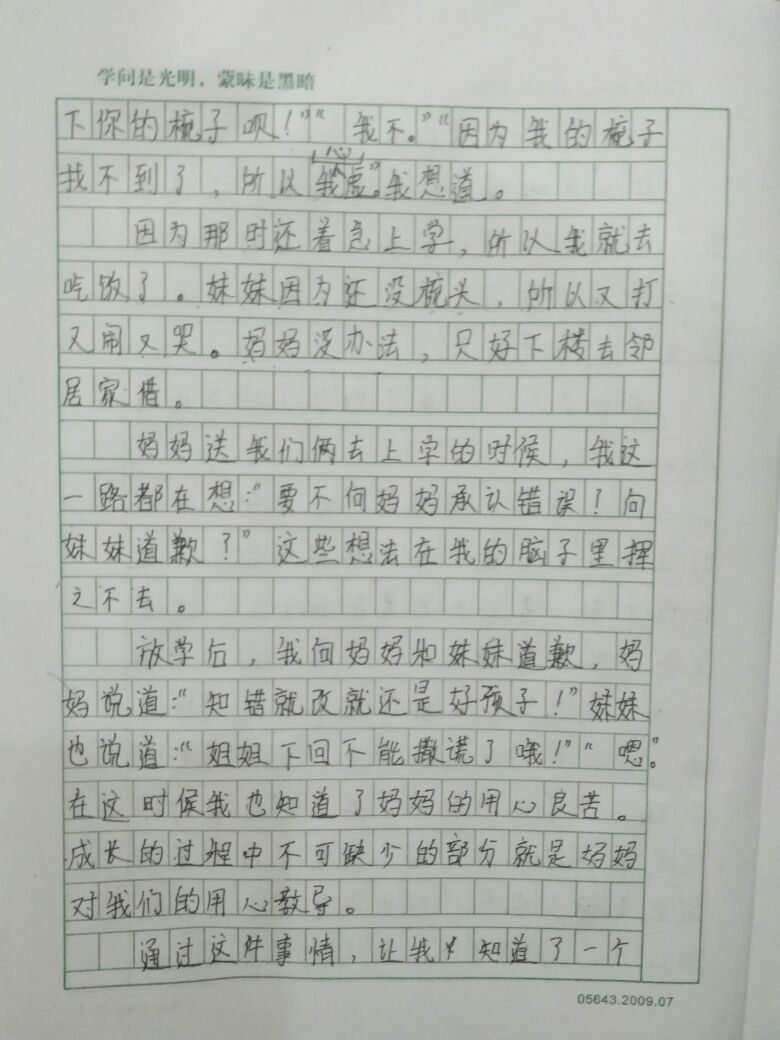 学问是光明，蒙昧是黑暗
下你的梳子呗！”“我不。”“因为我的梳子
找不到了，所以我心虚。”我想道。
因为那时还着急上学，所以我就去
吃饭了。妹妹因为还没梳头，所以又打
又闹又哭。妈妈没办法，只好下楼去邻
居家借。
妈妈送我们俩去上学的时候，我这
一路都在想：“要不向妈妈承认错误！向
妹妹道歉？”这些想法在我的脑子里挥
之不去。
放学后，我向妈妈和妹妹道歉，妈
妈说道：“知错就改就还是好孩子！”妹妹
也说道：“姐姐下回不能撒谎了哦！”“嗯。”
在这时候我也知道了妈妈的用心良苦。
成长的过程中不可缺少的部分就是妈妈
对我们的用心教导。
通过这件事情，让我知道了一个
05643.2009.07